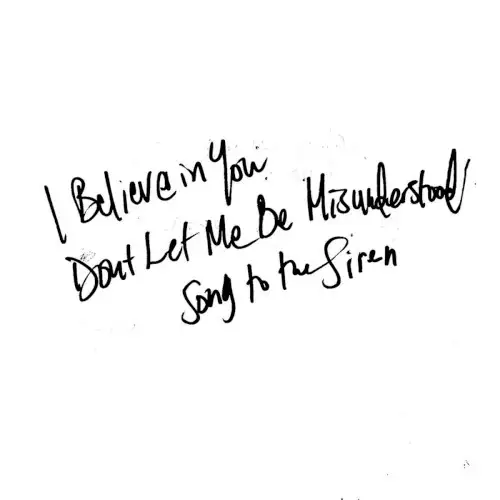 I Believe in You
Dont Let Me Be Misunderstood
Song to the Siren